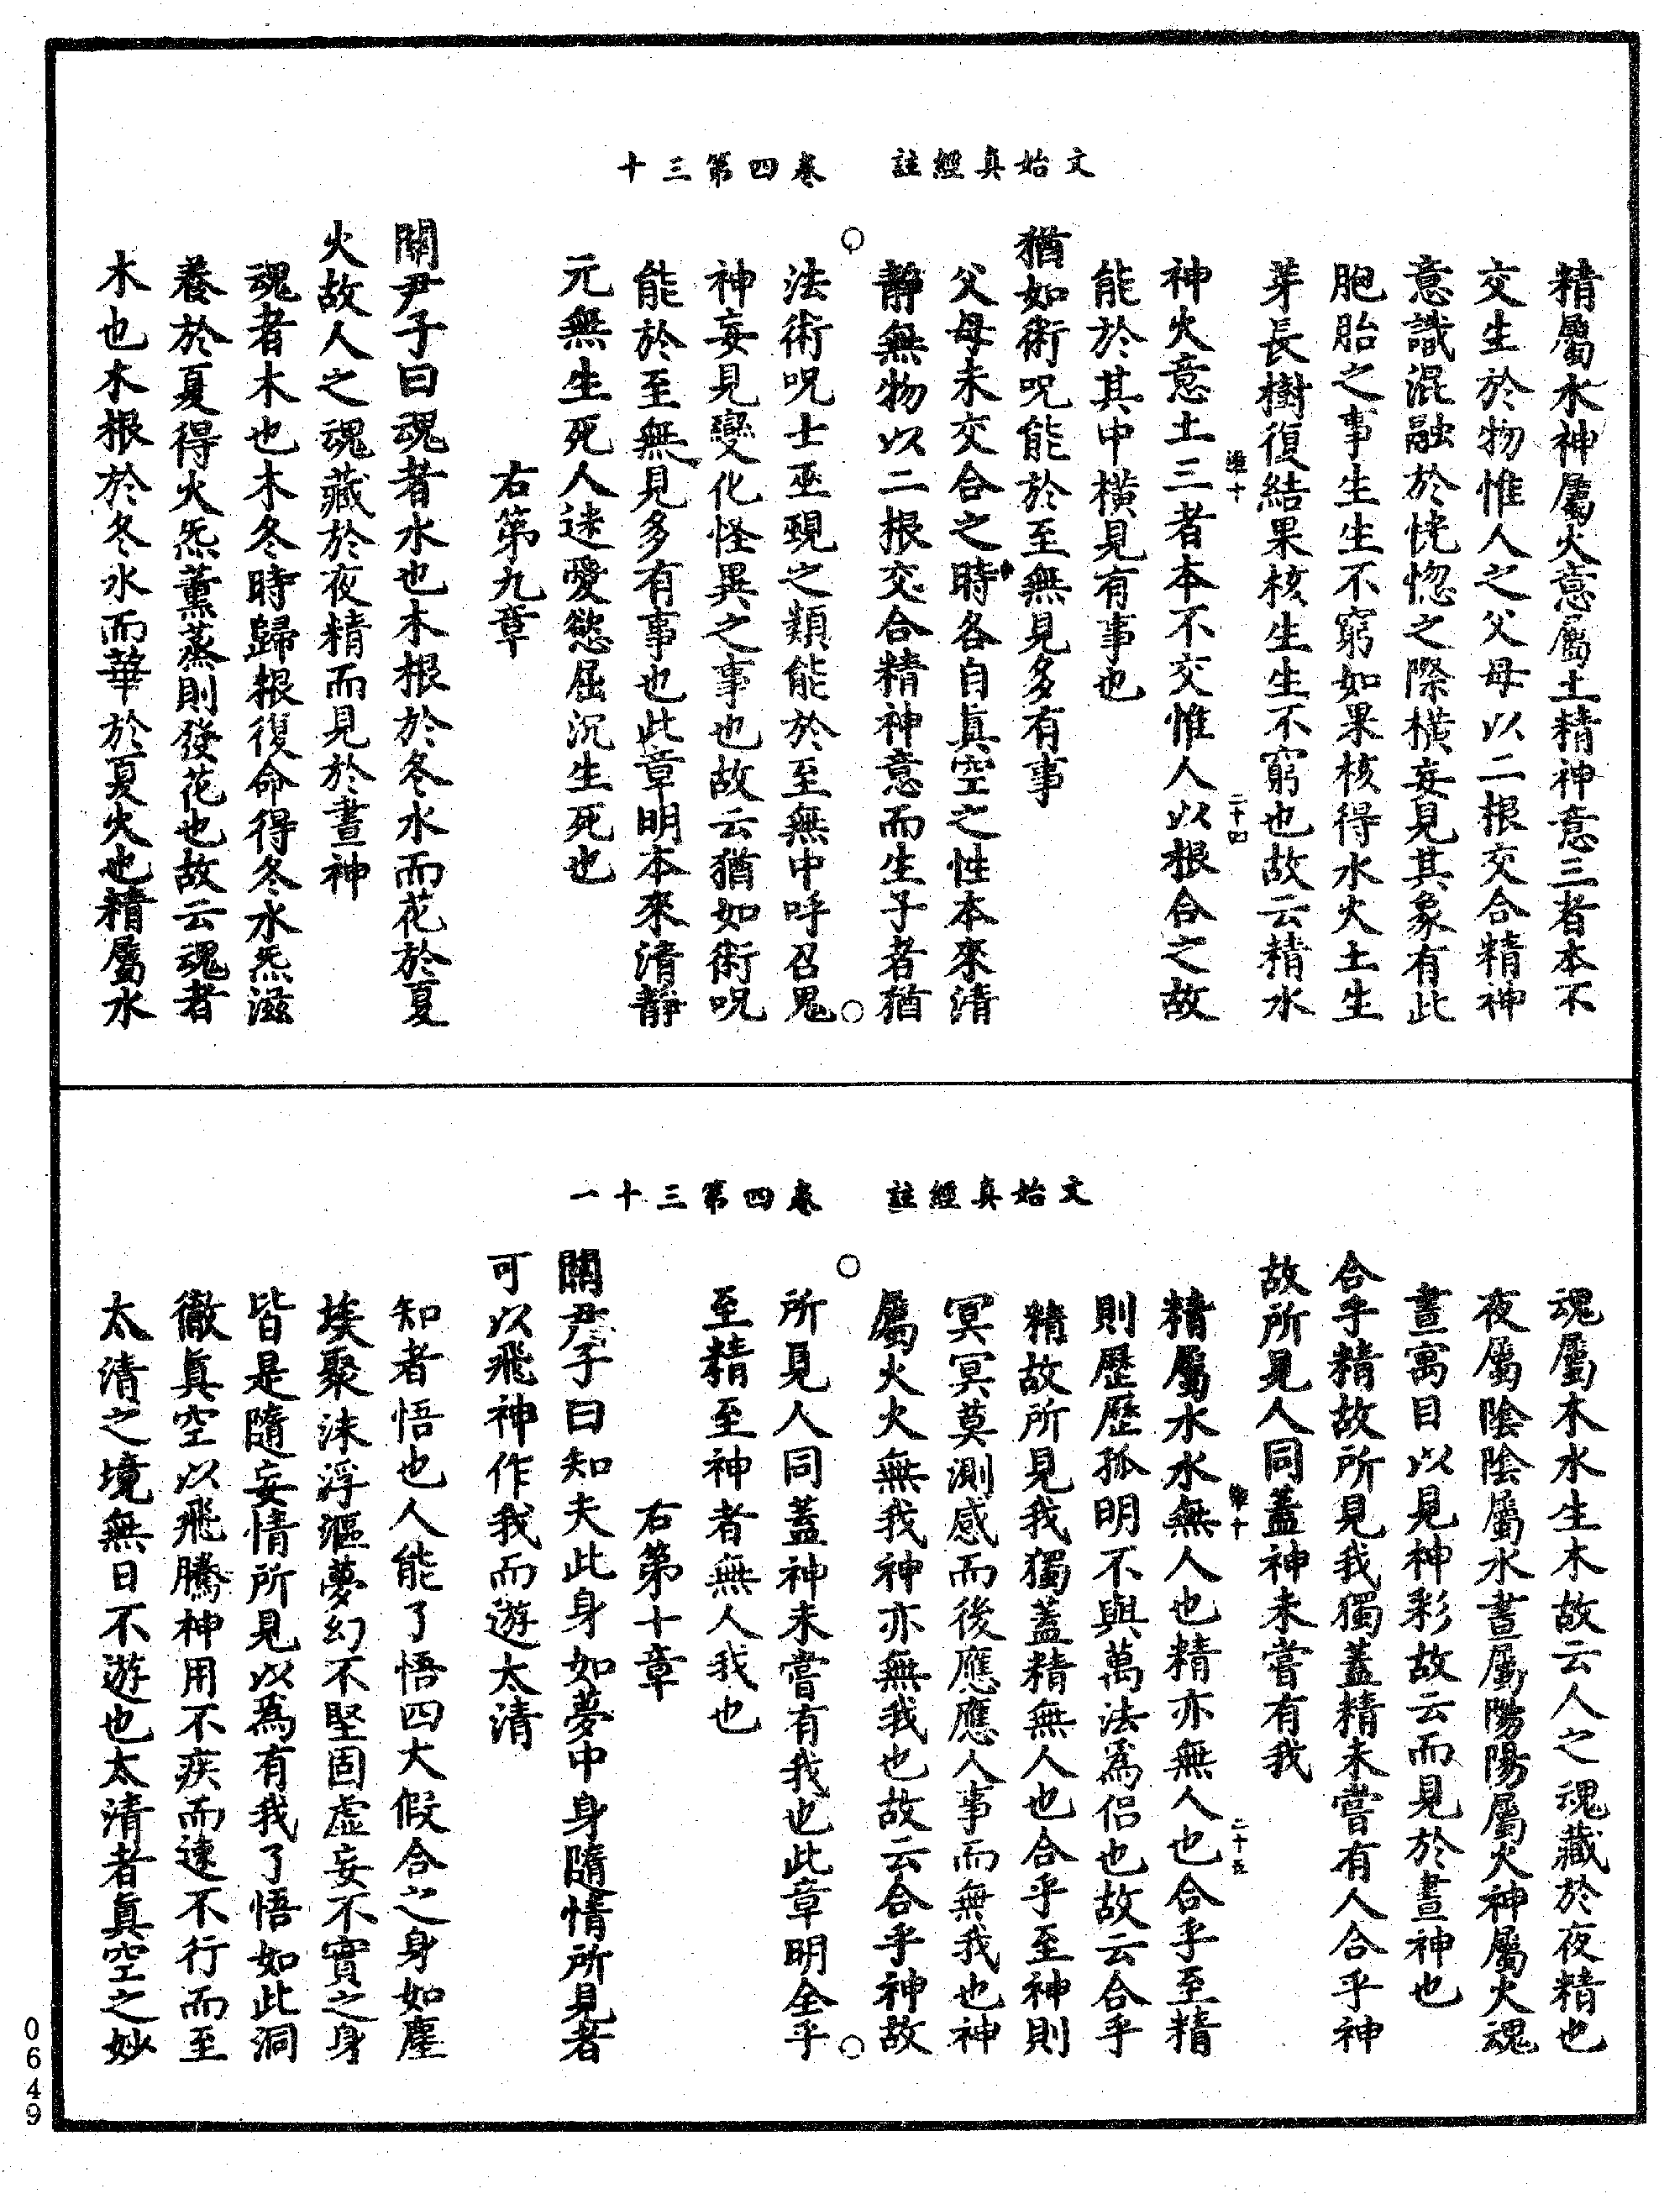 文始真經註　卷四第三十
精屬水神屬火意屬土精神意三者本不
交生於物惟人之父母以二根交合精神
意識混融於恍惚之際橫妄見其象有此
胞胎之事生生不窮如果核得水火土生
芽長樹復結果核生生不窮也故云精水
二十四
神火意土三者本不交惟人以根合之故
能於其中橫見有事也
猶如術呪能於至無見多有事
父母未交合之時各自真空之性本來清
靜無物以二根交合精神意而生子者猶
法術呪士巫覡之類能於至無中呼召鬼
神妄見變化怪異之事也故云猶如術呪
能於至無見多有事也此章明本來清靜
元無生死人迷愛慾屈沉生死也
右第九章
關尹子曰魂者水也木根於冬水而花於夏
火故人之魂藏於夜精而見於晝神
魂者木也木冬時歸根復命得冬水炁滋
養於夏得火炁薰蒸則發花也故云魂者
木也木根於冬水而華於夏火也精屬水
文始真經註　卷四第三十一
魂屬木水生木故云人之魂藏於夜精也
夜屬陰陰屬水晝屬陽陽屬火神屬火魂
晝寓目以見神彩故云而見於晝神也
合乎精故所見我獨蓋精未嘗有人合乎神
故所見人同蓋神未嘗有我
二十五
精屬水水無人也精亦無人也合乎至精
則歷歷孤明不與萬法為侶也故云合乎
精故所見我獨蓋精無人也合乎至神則
冥冥莫測感而後應應人事而無我也神
屬火火無我神亦無我也故云合乎神故
所見人同蓋神未嘗有我也此章明全乎
至精至神者無人我也
右第十章
關尹子曰知夫此身如夢中身隨情所見者
可以飛神作我而遊太清
知者悟也人能了悟四大假合之身如塵
埃聚沫浮漚夢幻不堅固虛妄不實之身
皆是隨妄情所見以為有我了悟如此洞
徹真空以飛騰神用不疾而速不行而至
太清之境無日不遊也太清者真空之妙
0649